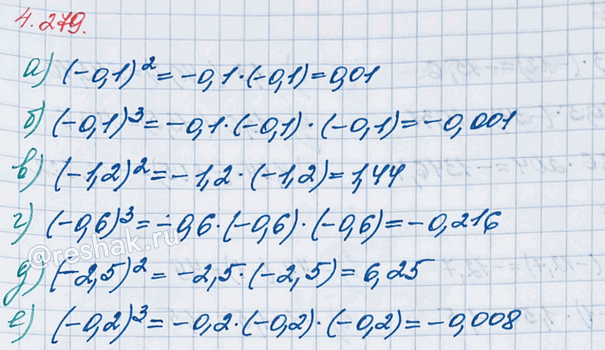 4.279.
а) (-0,1)² = -0,1·(-0,1) = 0,01
б) (-0,1)³ = -0,1·(-0,1)·(-0,1) = -0,001
в) (-1,2)² = -1,2·(-1,2) = 1,44
г) (-0,6)³ = -0,6·(-0,6)·(-0,6) = -0,216
@reshak.ru
д) (-2,5)² = -2,5·(-2,5) = 6,25
е) (-0,2)³ = -0,2·(-0,2)·(-0,2) = -0,008